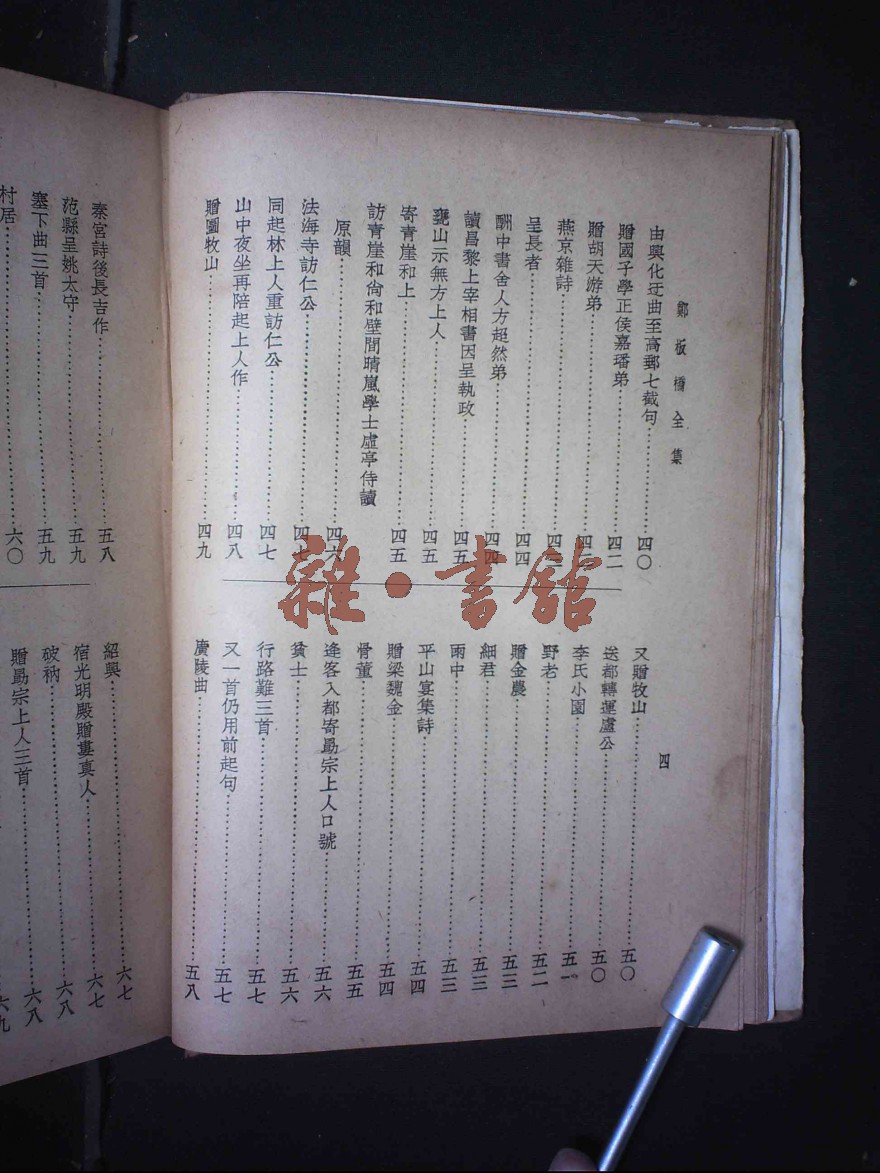 鄭板橋全集
由興化迂曲至高郵七截句……四〇
贈國子學正侯嘉璠弟……四二
贈胡天游弟……四三
燕京雜詩……四三
呈長者……四四
酬中書舍人方超然弟……四四
讀昌黎上宰相書因呈執政……四五
甕山示無方上人……四五
寄青崖和上……四五
訪青崖和尙和壁間晴嵐學士虛亭侍讀
原韻……四六
法海寺訪仁公……四七
同起林上人重訪仁公……四七
山中夜坐再陪起上人作……四八
贈圖牧山……四九
四
又贈牧山……五〇
送都轉運盧公……五〇
李氏小園……五一
野老……五二
贈金農……五三
細君……五三
雨中……五三
平山宴集詩……五四
贈梁魏金……五四
骨董……五五
逢客入都寄勗宗上人口號……五六
貧士……五六
行路難三首……五七
又一首仍用前起句……五七
廣陵曲……五八
秦宮詩後長吉作……五八
范縣呈姚太守……五九
塞下曲三首……五九
村居……六〇
紹興……六七
宿光明殿贈婁真人……六七
破衲……六八
贈勗宗上人三首……六八
六九
雜·書館